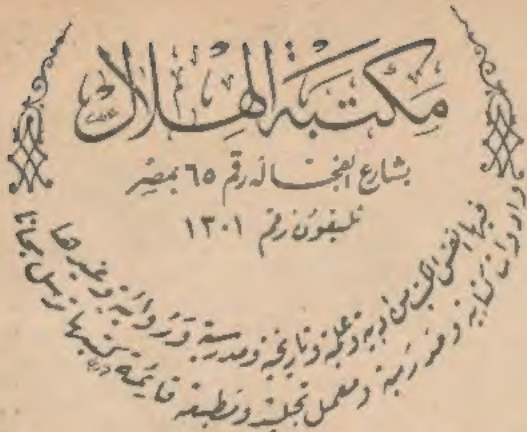 مكتبة الهلال
بشارع الفجالة رقم ٦٥ بمصر
تليفون رقم ١٣٠١
فيها أنفس الكتب من أدبية وعلمية وتاريخية ومدرسية وروائية وغيرها
وأدوات كتابية ومدرسية ومعمل تجليد ومطبعة قائمة كتبها ترسل مجانا